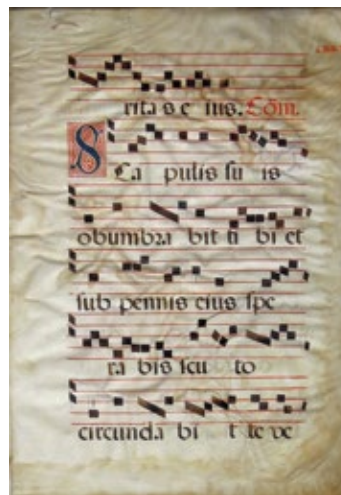 rita s e ius. Com.
SCa pulis su is
obumbra bit ti bi et
sub pennis eius spe
ra bis scu to
circunda bi t te ve